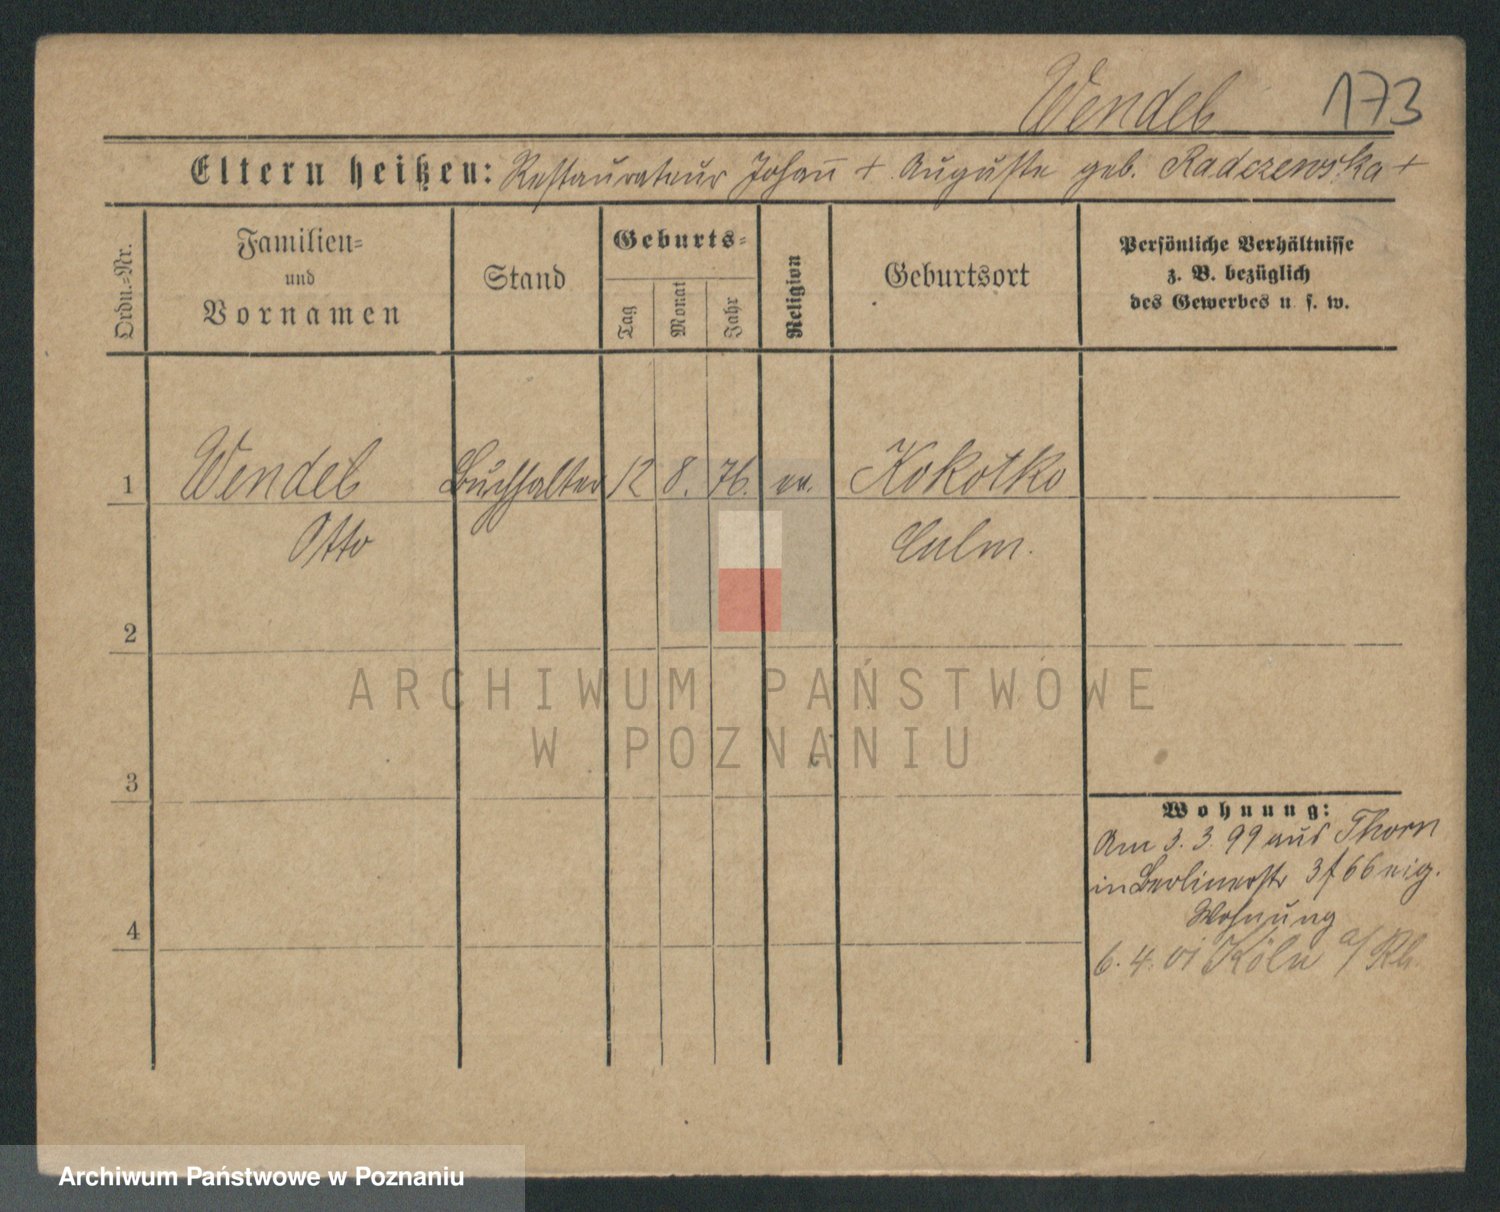 Wendel 173
Eltern heißen: Restaurateur Johann̄ + Auguste geb. Radczewska +
Ordn.-Nr.
Familien-
und
Vornamen
Stand
Geburts-
Tag
Monat
Jahr
Religion
Geburtsort
Persönliche Verhältnisse
z. B. bezüglich
des Gewerbes u. s. w.
1 Wendel Buchhalter 12 8. 76. ev. Kokotko
Otto Culm.
2
3
4
ARCHIWUM PAŃSTWOWE
W POZNANIU
Wohnung:
Am 3. 3. 99 aus Thorn
in Berlinerstr 3 f 66 eig.
Wohnung
6. 4. 01 Köln a/Rh.
Archiwum Państwowe w Poznaniu